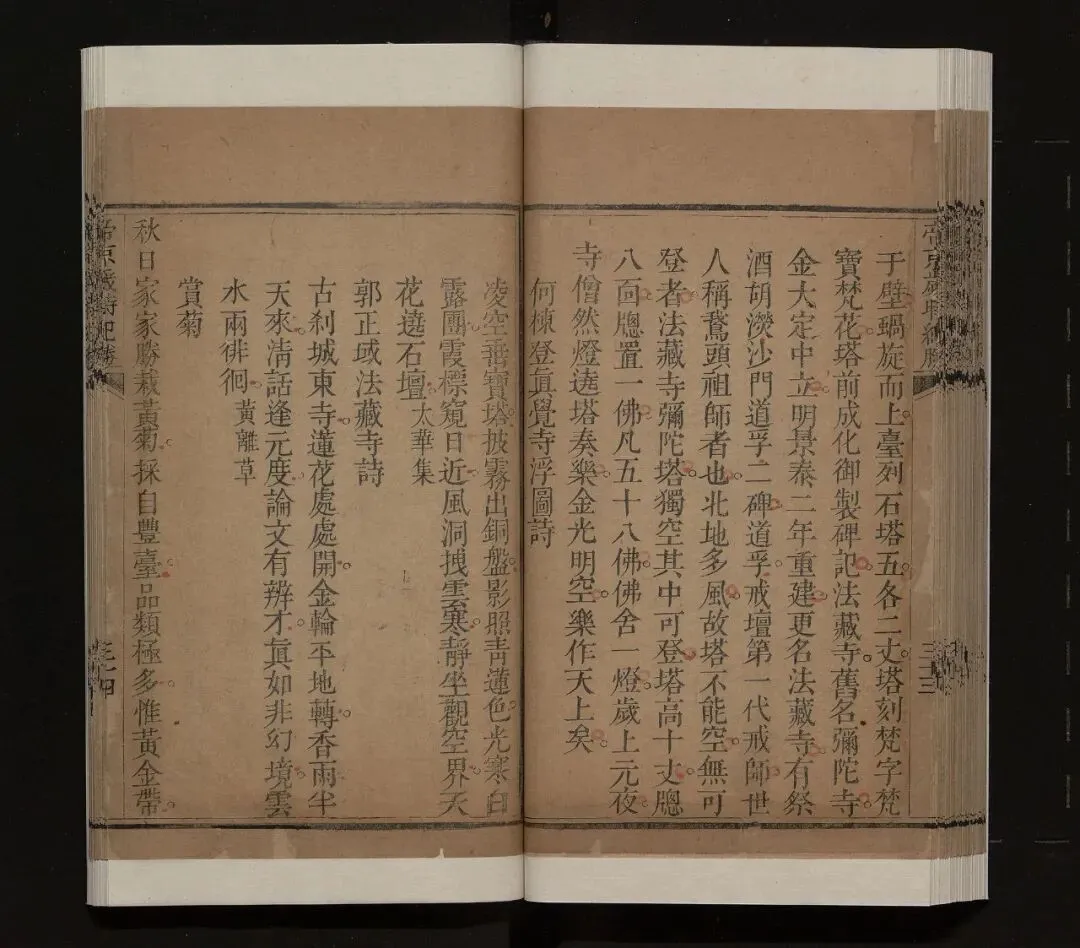 于壁蝸旋而上臺列石塔五各二丈塔刻梵字梵
寶梵花塔前成化御製碑記法藏寺舊名彌陀寺
金大定中立明景泰二年重建更名法藏寺有祭
酒胡濙沙門道孚二碑道孚戒壇第一代戒師世
人稱鵞頭祖師者也北地多風故塔不能空無可
登者法藏寺彌陀塔獨空其中可登塔高十丈牕
八面牕置一佛凡五十八佛佛舍一燈歲上元夜
寺僧然燈遶塔奏樂金光明空樂作天上矣
何棟登真覺寺浮圖詩
凌空垂寶塔披霧出銅盤影照青蓮色光寒白
露團霞標窺日近風洞拽雲寒靜坐觀空界天
花遶石壇 太華集
郭正域法藏寺詩
古刹城東寺蓮花處處開金輪平地轉香雨半
天來清話逢元度論文有辨才真如非幻境雲
水兩徘徊 黃離草
賞菊
秋日家家勝栽黃菊採自豐臺品類極多惟黃金帶
帝京歲時紀勝